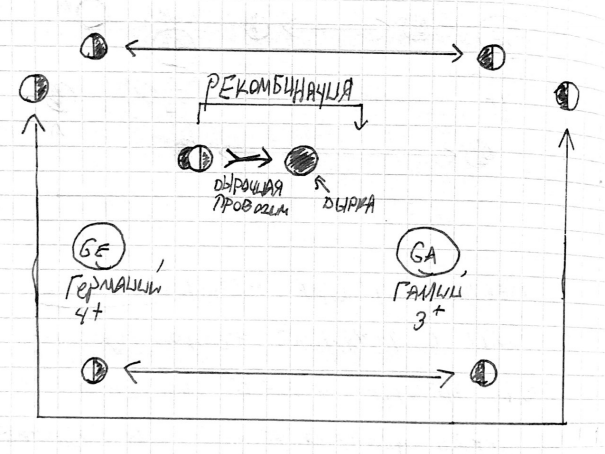 РЕКОМБИНАЦИЯ
ДЫРОЧНАЯ
ПРОВОДИМ
ДЫРКА
GE
ГЕРМАНИЙ
4+
GA
ГАЛИЙ
3+